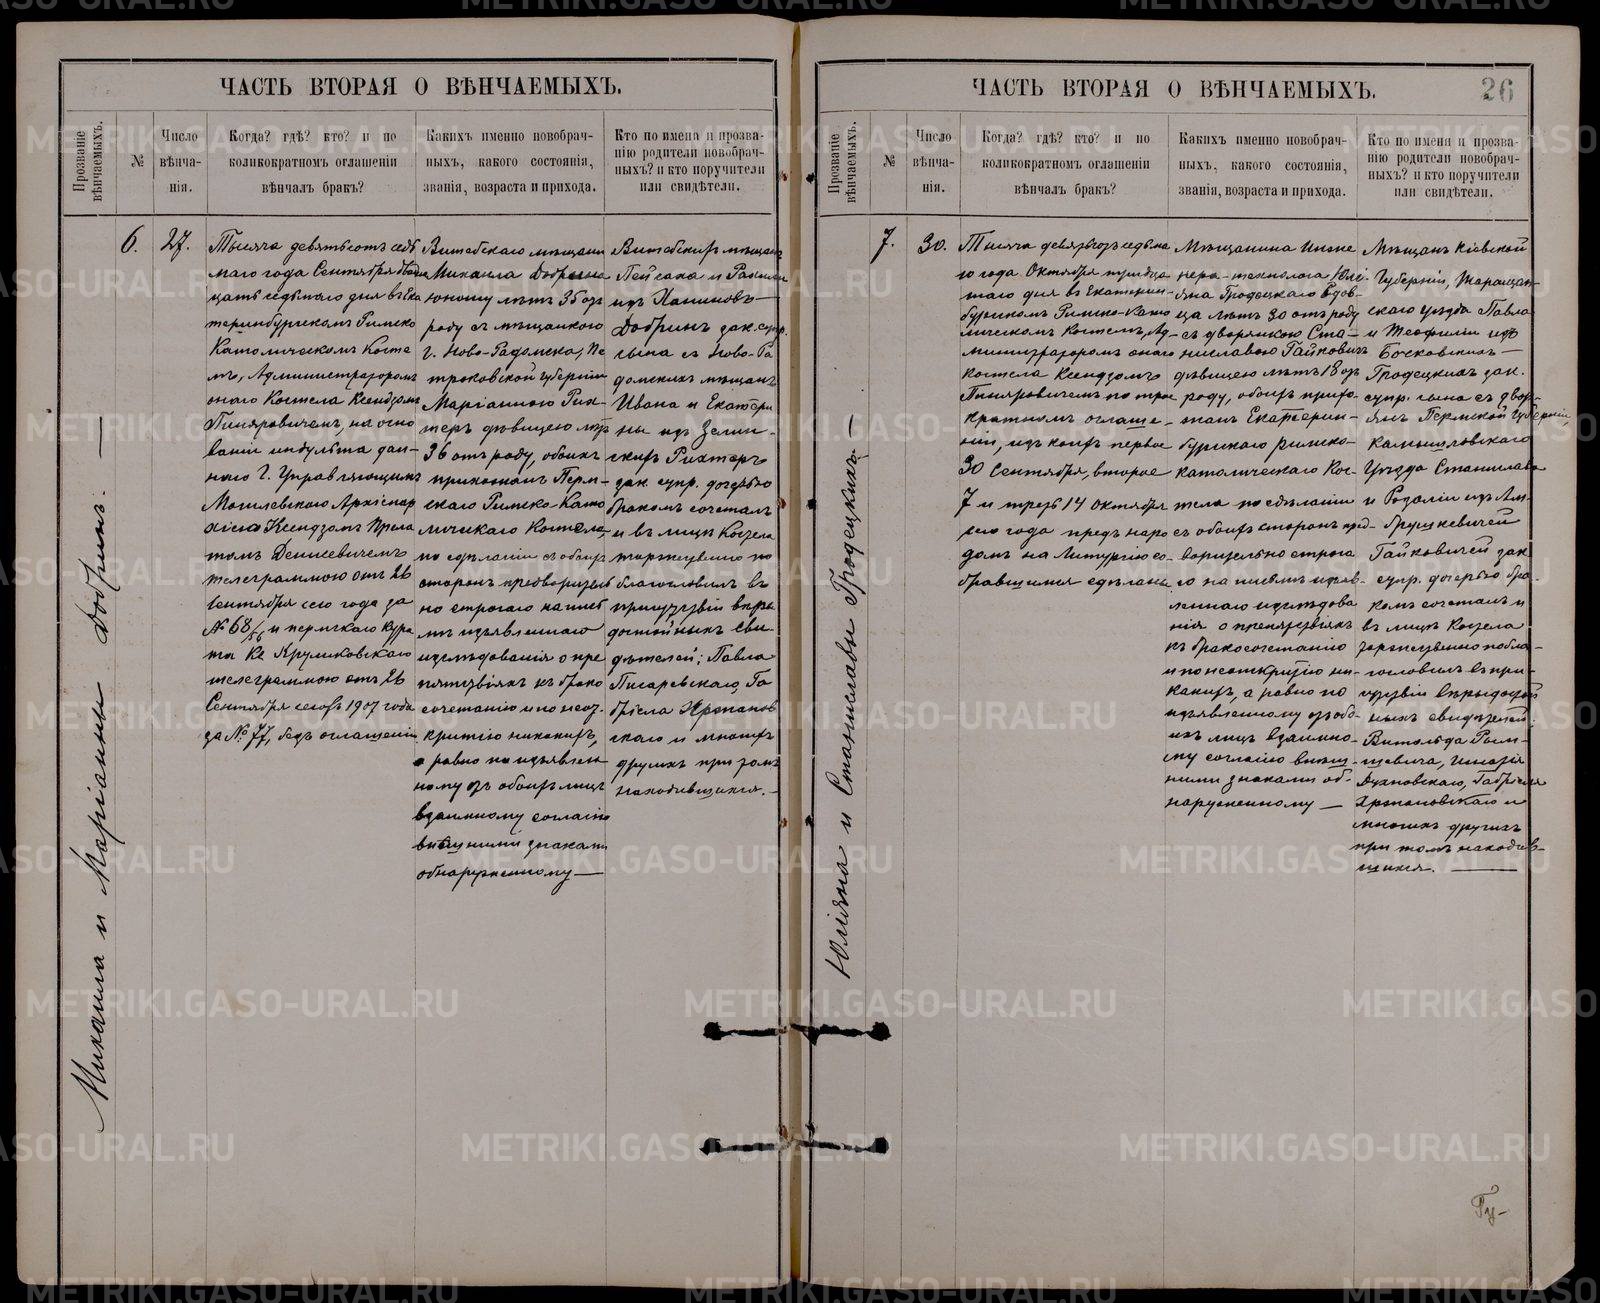 ЧАСТЬ ВТОРАЯ О ВѢНЧАЕМЫХЪ.
Прозваніе вѣнчаемыхъ.
№
Число вѣнча-нія.
Когда? гдѣ? кто? и по
коликократномъ оглашеніи
вѣнчалъ бракъ?
Какихъ именно новобрач-
ныхъ, какого состоянія,
званія, возраста и прихода.
Кто по имени и прозва-
нію родители новобрач-
ныхъ? и кто поручители
или свидѣтели.
Михаила и Маріанны Добринъ.
6.
27.
Тысяча девятьсотъ седь
маго года Сентября двад
цать седьмого дня въ Ека
теринбургскомъ Римско
Католическомъ Косте
лѣ, Администраторомъ
онаго Костела Ксендзомъ
на осно
ваніи индульта дан-
наго Г. Управляющимъ
Могилевскою Архіепар
хіею Ксендзомъ Прела
томъ Денисевичемъ
телеграммою отъ 26
Сентября сего года за
№ 68/56 и пермскаго Кура
та Кс
телеграммою отъ 26
Сентября сегожъ 1907 года
за № 77, безъ оглашенія
Витебскаго мѣщанина
Михаила Добрина
юношу лѣтъ 35 отъ
роду съ мѣщанкою
г. Ново-Радомска, Пе
троковской губерніи
Маріанною Рих-
теръ дѣвицею лѣтъ
36 отъ роду, обоихъ
прихожанъ Перм-
скаго Римско-Като
личскаго Костела,
по сдѣланіи съ обоихъ
сторонъ предваритель
но строгаго на письм
ѣ изъявленнаго
изслѣдованія о пре
пятствіяхъ къ брако
сочетанію и по неот
крытію никакихъ,
а равно по изъявлен
ному отъ обоихъ лицъ
взаимному согласію
внѣшними знаками
обнаруженному —
Витебскихъ мѣщанъ
Пейсаха и
изъ Хаимовъ —
Добринъ зак. супр.
сына съ Ново-Ра
домскихъ мѣщанъ
Ивана и Екатери
ны изъ Зелин-
скихъ Рихтеръ
зак. супр. дочерью
бракомъ сочеталъ
и въ лицѣ Костела
торжественно по
благословилъ въ
присутствіи вѣры
достойныхъ сви
дѣтелей: Павла
Писаревскаго, Га
бріеля Хржанов
скаго и многихъ
другихъ при томъ
находившихся. —
ЧАСТЬ ВТОРАЯ О ВѢНЧАЕМЫХЪ.
26
Прозваніе вѣнчаемыхъ.
№
Число вѣнча-нія.
Когда? гдѣ? кто? и по
коликократномъ оглашеніи
вѣнчалъ бракъ?
Какихъ именно новобрач-
ныхъ, какого состоянія,
званія, возраста и прихода.
Кто по имени и прозва-
нію родители новобрач-
ныхъ? и кто поручители
или свидѣтели.
Юліяна и Станиславы Гродецкихъ —
7.
30.
Тысяча девятьсотъ седьма
го года Октября тридца
таго дня въ Екатерин-
бургскомъ Римско-Като
лическомъ Костелѣ, Ад-
министраторомъ онаго
Костела Ксендзомъ
по трое
кратномъ оглаше-
ніи, изъ коихъ первое
30 Сентября, второе
7 и третье 14 Октября
сего года предъ наро
домъ на Литургію со-
бравшимся сдѣлана
Мѣщанина Инже
нера-технолога Юлі-
яна Гродецкаго вдов-
ца лѣтъ 30 отъ роду
съ дворянкою Ста-
ниславою Гайковичъ
дѣвицею лѣтъ 18 отъ
роду, обоихъ прихо-
жанъ Екатерин-
бургскаго римско-
католическаго Кос-
тела по сдѣланіи
съ обоихъ сторонъ пред-
варительно строга
го на письмѣ изъяв-
леннаго изслѣдова
нія о препятствіяхъ
къ бракосочетанію
и по неоткрытію ни-
какихъ, а равно по
изъявленному отъ обо-
ихъ лицъ взаимно-
му согласію внѣш-
ними знаками об-
наруженному —
Мѣщанъ Кіевской
Губерніи, Таращан-
скаго уѣзда Павла
и Теофиліи изъ
Босковскихъ —
Гродецкихъ зак.
супр. сына съ двор-
янъ Пермской Губерніи,
Камышловскаго
Уѣзда Станислава
и Розаліи изъ Ям-
брушкевичей
Гайковичей зак.
супр. дочерью бра-
комъ сочеталъ и
въ лицѣ Костела
торжественно побла-
гословилъ въ при-
сутствіи вѣры достой
ныхъ свидѣтелей:
Витольда Рым-
шевича, Игнатія
Духновскаго, Габріеля
Хржановскаго и
многихъ другихъ
при томъ находив-
шихся. —
Гу-
METRIKI.GASO-URAL.RU